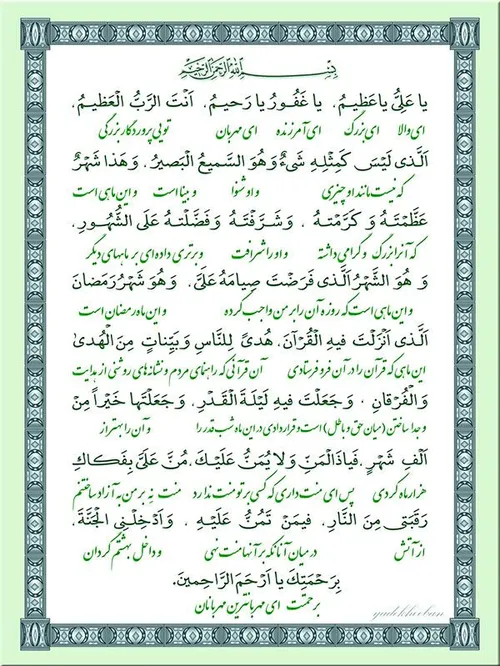 بِسْمِ اللهِ الرَّحْمنِ الرَّحيمِ
يا عَلِيُّ يا عَظيمُ، يا غَفُورُ يا رَحيمُ، اَنْتَ الرَّبُّ الْعَظيمُ،
ای والا ای بزرگ ای آمرزنده ای مهربان تویی پروردگار بزرگی
اَلَّذی لَیْسَ کَمِثْلِهِ شَیْءٌ وَهُوَ السَّمیعُ الْبَصیرُ، وَهٰذا شَهْرٌ
که نیست مانند او چیزی و او شنوا و بینا است و این ماهی است
عَظَّمْتَهُ وَ کَرَّمْتَهُ ، وَشَرَّفْتَهُ وَفَضَّلْتَهُ عَلَی الشُّهُورِ،
که آنرا بزرگ و گرامی داشته و او را شرافت و برتری داده ای بر ماههای دیگر
وَ هُوَ الشَّهْرُ الَّذی فَرَضْتَ صِیامَهُ عَلَیَّ، وَهُوَ شَهْرُ رَمَضانَ
و این ماهی است که روزه آن را بر من واجب کرده و این ماه رمضان است
اَلَّذی اَنْزَلْتَ فیهِ الْقُرْآنَ، هُدیً لِلنَّاسِ وَبَیِّناتٍ مِنَ الْهُدیٰ
این ماهی که قرآن را در آن فرو فرستادی آن قرآنی که راهنمای مردم و نشانه های روشنی از هدایت
وَالْفُرْقانِ ، وَجَعَلْتَ فیهِ لَیْلَةَ الْقَدْرِ، وَجَعَلْتَها خَیْراً مِنْ
و جدا ساختن (میان حق و باطل) است و قرار دادی در این ماه شب قدر را و آن را بهتر از
اَلْفِ شَهْرٍ، فَیاذَالْمَنِّ وَلا یُمَنُّ عَلَیْكَ، مُنَّ عَلَیَّ بِفَکاكِ
هزار ماه کردی پس ای منت داری که کسی بر تو منت ندارد منت نه بر من به آزاد ساختنم
رَقَبَتی مِنَ النَّارِ، فیمَنْ تَمُنُّ عَلَیْهِ ، وَاَدْخِلْنِی الْجَنَّةَ،
از آتش در میان آنانکه بر آنها منت نهی و داخل بهشتم گردان
بِرَحْمَتِكَ یا اَرْحَمَ الرَّاحِمینَ.
برحمتت ای مهربانترین مهربانان